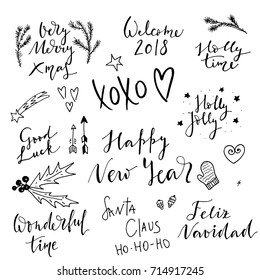 Very
Merry
Xmas
Welcome
2018
Holly
time
XOXO
Holly
Jolly
Good
Luck
Happy
New Year
Wonderful
time
SANTA
CLAUS
HO-HO-HO
Feliz
Navidad
shutterstock.com · 714917245